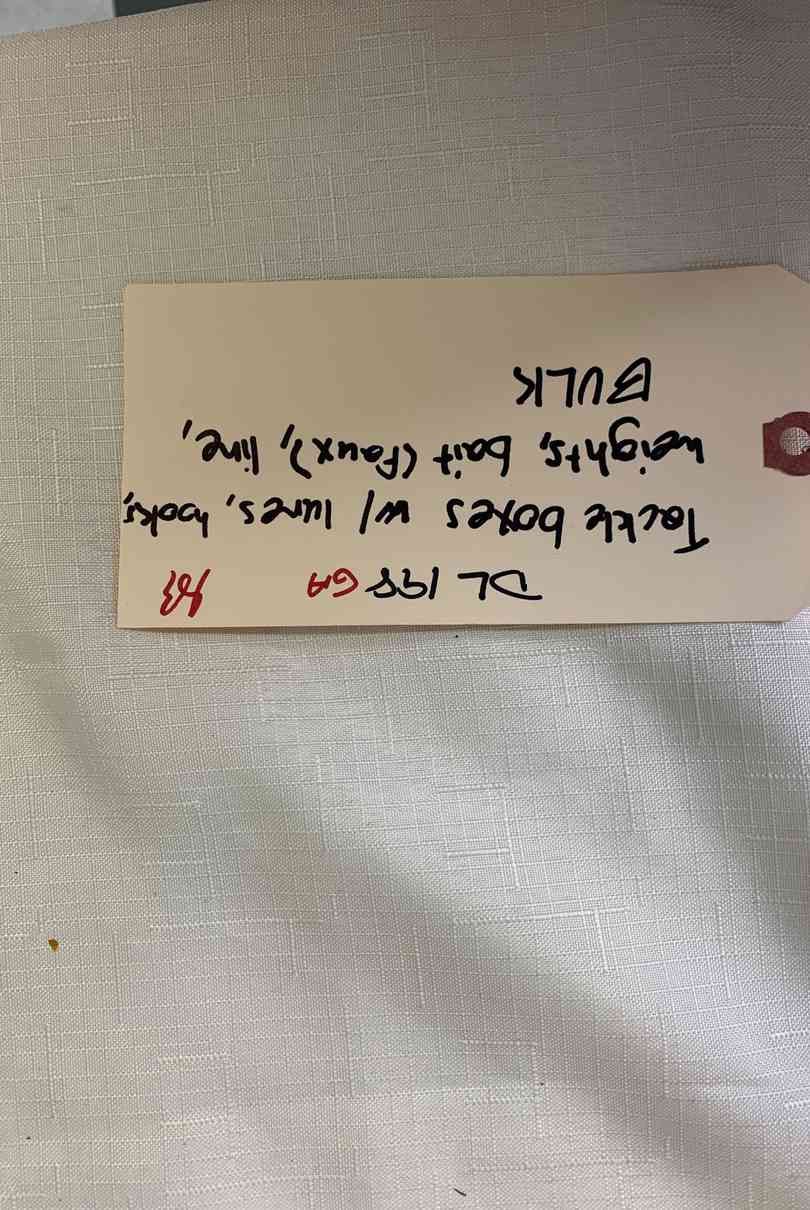 DL 198 GA
Tackle boxes w/ lures, hooks,
weights, bait (Faux), line,
BULK